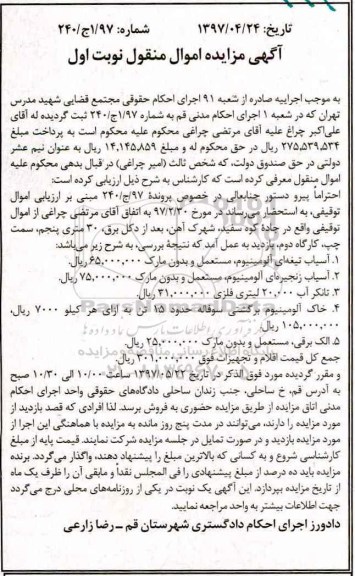 تاریخ: ۱۳۹۷/۰۴/۲۴ شماره: ۱/۹۷ج/۲۴۰
آگهی مزایده اموال منقول نوبت اول
به موجب اجراییه صادره از شعبه ۹۱ اجرای احکام حقوقی مجتمع قضایی شهید مدرس
تهران که در شعبه ۱ اجرای احکام مدنی قم به شماره ۱/۹۷ج/۲۴۰ ثبت گردیده له آقای
علی‌اکبر چراغ علیه آقای مرتضی چراغی محکوم علیه محکوم است به پرداخت مبلغ
۲۷۵,۵۳۹,۵۳۴ ریال در حق محکوم له و مبلغ ۱۴,۱۴۵,۸۵۹ ریال به عنوان نیم عشر
دولتی در حق صندوق دولت، که شخص ثالث (امیر چراغی) در قبال بدهی محکوم علیه
اموال منقول معرفی کرده است که کارشناس به شرح ذیل ارزیابی کرده است:
احتراماً پیرو دستور جنابعالی در خصوص پرونده ۱/۹۷ج/۲۴۰ مبنی بر ارزیابی اموال
توقیفی، به استحضار می‌رساند در مورخ ۹۷/۳/۳۰ به اتفاق آقای مرتضی چراغی از اموال
توقیفی واقع در جاده کوه سفید، شهرک آهن، بعد از دکل برق، ۳۰ متری پنجم، سمت
چپ، کارگاه دوم، بازدید به عمل آمد که نتیجه بررسی، به شرح زیر می‌باشد:
۱. آسیاب تیغه‌ای آلومینیوم، مستعمل و بدون مارک ۶۵,۰۰۰,۰۰۰ ریال.
۲. آسیاب زنجیره‌ای آلومینیوم، مستعمل و بدون مارک ۷۵,۰۰۰,۰۰۰ ریال.
۳. تانکر آب ۲۰,۰۰۰ لیتری فلزی ۳۱,۰۰۰,۰۰۰ ریال.
۴. خاک آلومینیوم برگشت سوفاله حدود ۱۵ تن به ازای هر کیلو ۷۰۰۰ ریال،
۱۰۵,۰۰۰,۰۰۰ ریال.
۵. الک برقی، مستعمل و بدون مارک ۲۵,۰۰۰,۰۰۰ ریال.
جمع کل قیمت اقلام و تجهیزات فوق ۳۰۱,۰۰۰,۰۰۰ ریال.
و مقرر گردیده مورد فوق الذکر در تاریخ ۱۳۹۷/۰۵/۲۳ ساعت ۱۰/۰۰ الی ۱۰/۳۰ صبح
به آدرس قم، خ ساحلی، جنب زندان ساحلی دادگاه‌های حقوقی واحد اجرای احکام
مدنی اتاق مزایده از طریق مزایده حضوری به فروش برسد. لذا افرادی که قصد بازدید از
مورد مزایده را دارند، می‌توانند در مدت پنج روز مانده به مزایده با هماهنگی این اجرا از
مورد مزایده بازدید و در صورت تمایل در جلسه مزایده شرکت نمایند. قیمت پایه از مبلغ
کارشناسی شروع و به کسانی که بالاترین مبلغ را پیشنهاد دهند، واگذار می‌گردد. برنده
مزایده باید ده درصد از مبلغ پیشنهادی را فی المجلس نقداً و مابقی آن را ظرف یک ماه
از تاریخ مزایده بپردازد. این آگهی یک نوبت در یکی از روزنامه‌های محلی درج می‌گردد
جهت اطلاعات بیشتر به واحد مراجعه نمایید.
دادورز اجرای احکام دادگستری شهرستان قم _ رضا زارعی